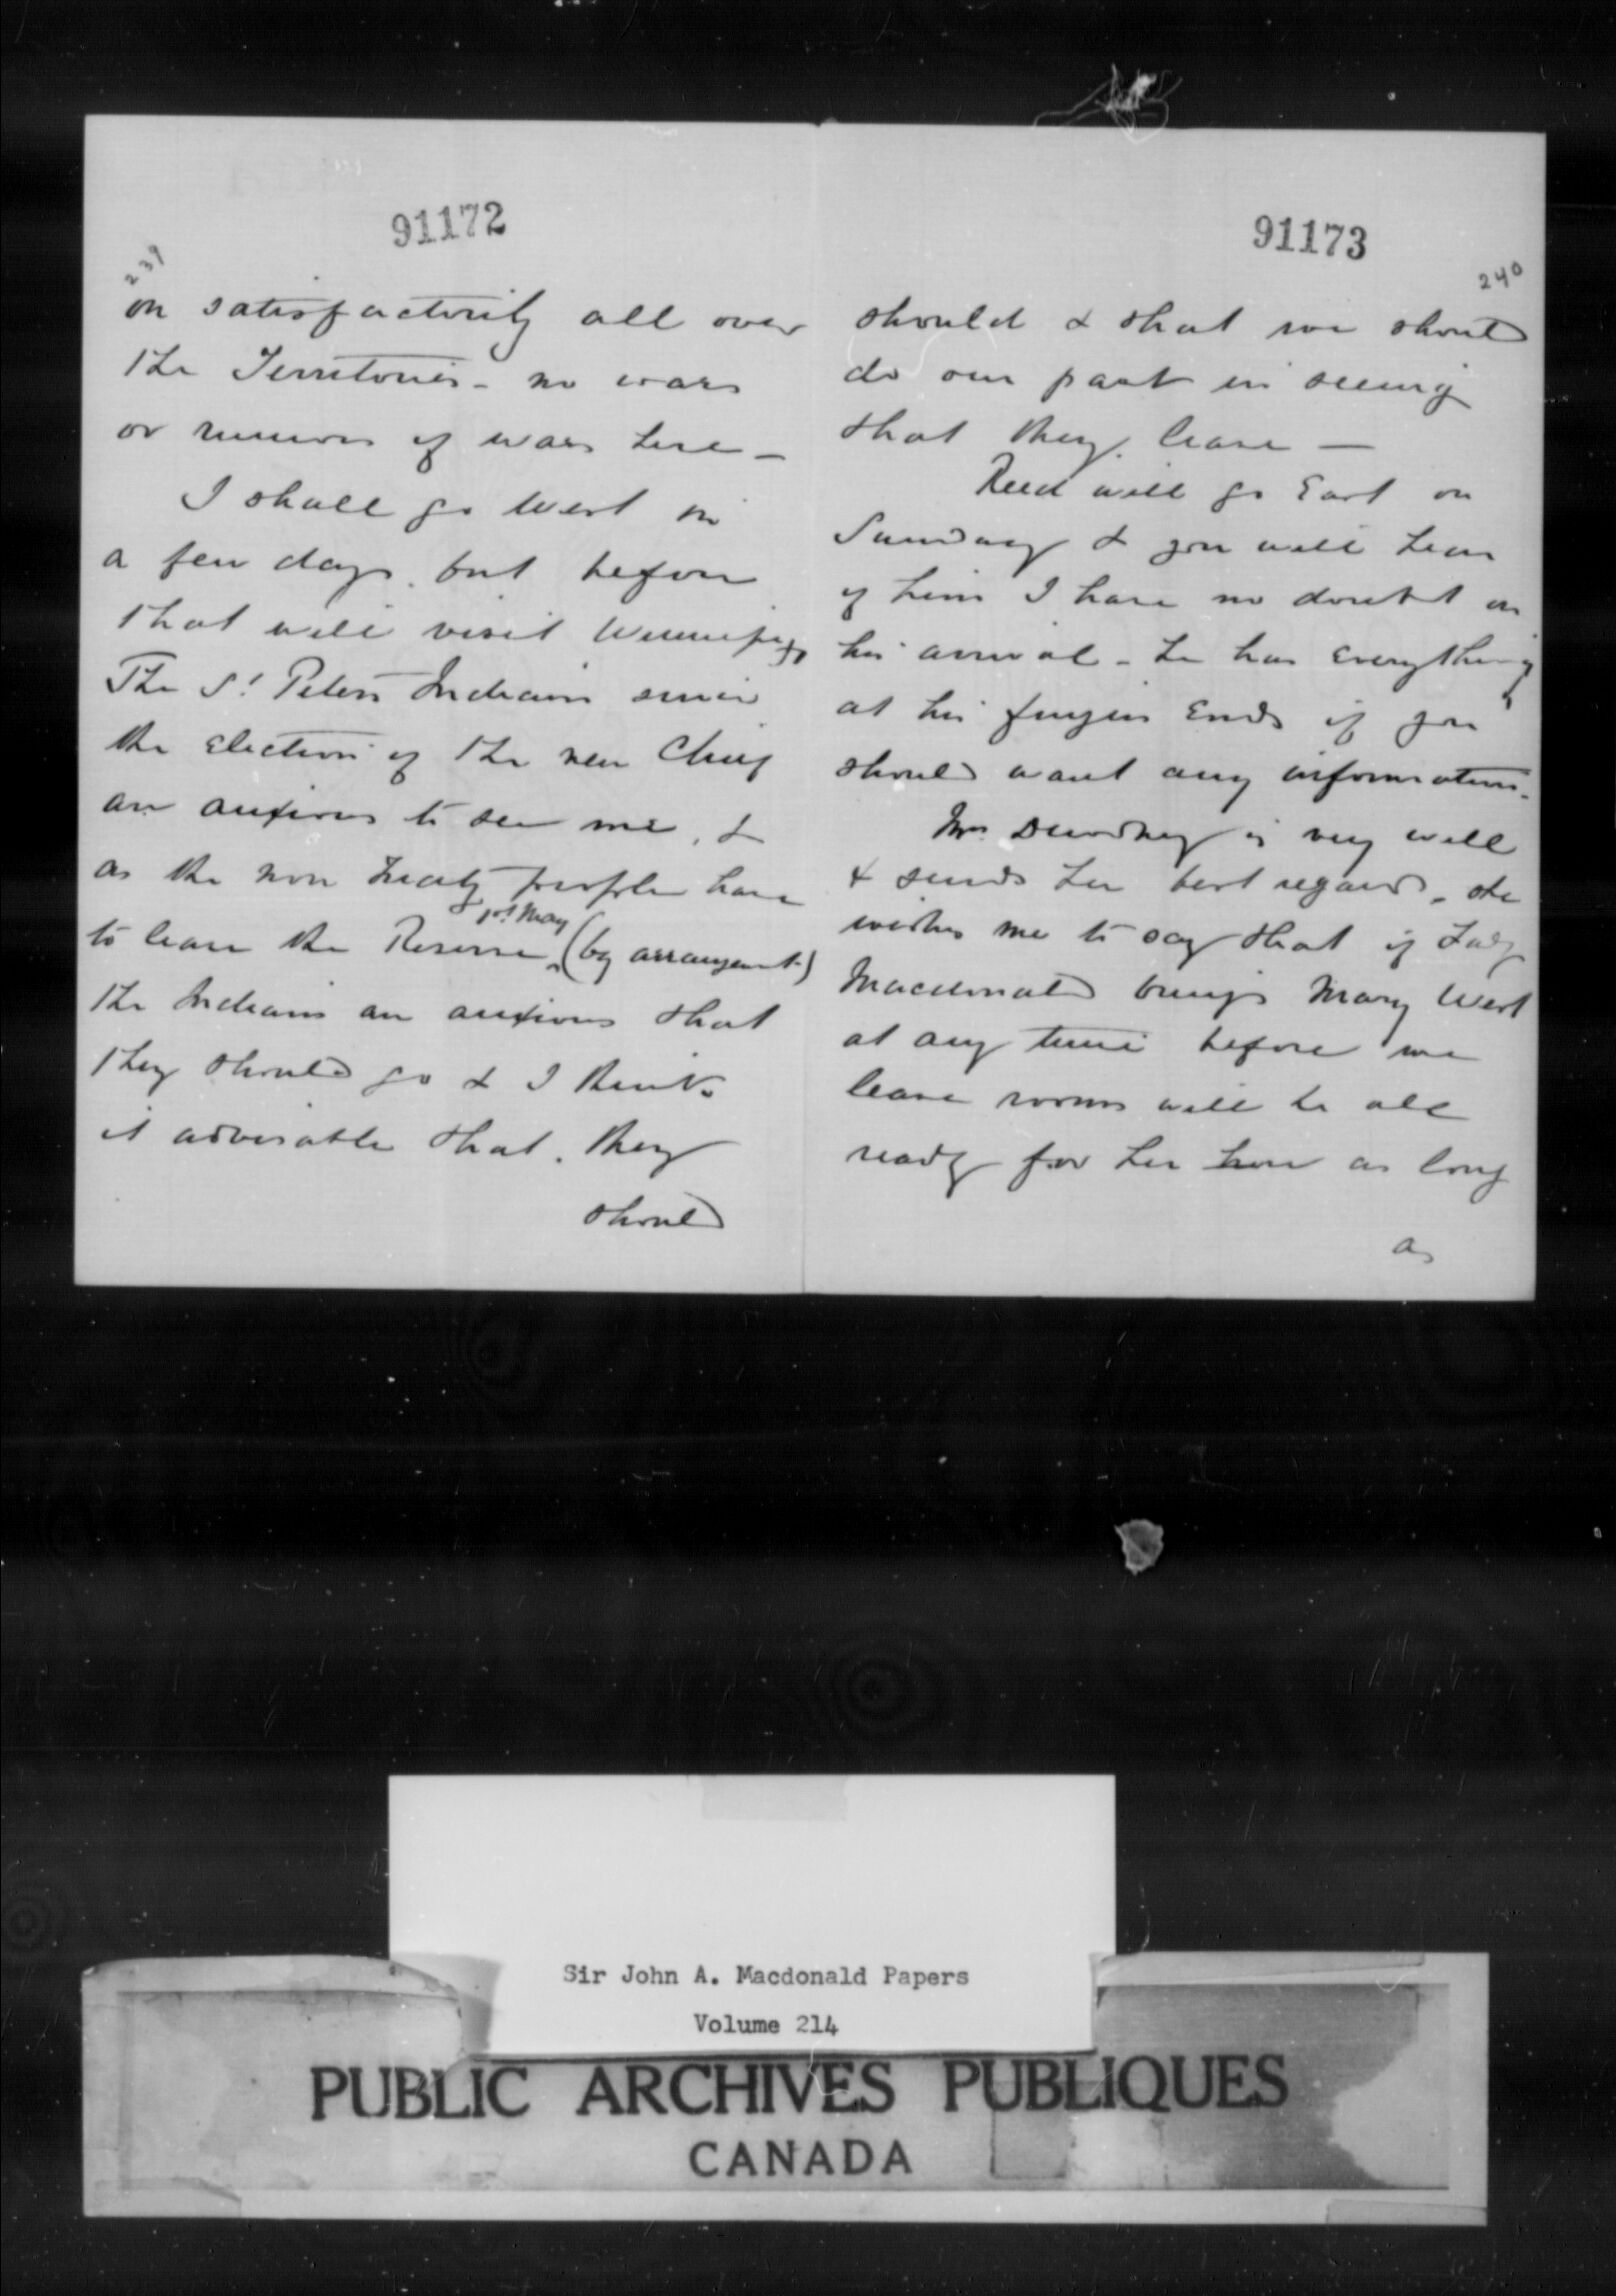 91172
239
on satisfactorily all over
the Territories - no wars
or rumours of wars here -
I shall go West in
a few days, but before
that will visit Winnipeg
The St Peters Indians since
the election of the new Chief
are anxious to see me, &
as the non treaty people have
1st May
to leave the Reserve (by arrangement)
the Indians are anxious that
they should go & I think
it advisable that they
should
91173
240
should & that we should
do our part in seeing
that they leave -
Reed will go East on
Sunday & you will hear
of him I have no doubt on
his arrival - he has everything
at his fingers Ends if you
should want any information.
Mrs Dewdney is very well
& sends her best regards, she
wishes me to say that if Lady
Macdonald brings Mary West
at any time before we
leave rooms will be all
ready for her here as long
as
Sir John A. Macdonald Papers
Volume 214
PUBLIC ARCHIVES PUBLIQUES
CANADA